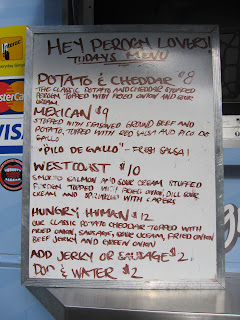 Interac
MasterCard
VISA
HEY PEROGY LOVERS!
TODAYS MENU
POTATO & CHEDDAR $8
THE CLASSIC POTATO AND CHEDDAR STUFFED
PEROGY, TOPPED WITH FRIED ONION AND SOUR
CREAM
MEXICAN $9
STUFFED WITH SEASONED GROUND BEEF AND
POTATO, TOPPED WITH RED SALSA AND PICO DE
GALLO
"PICO DE GALLO" - FRESH SALSA!
WESTCOAST $10
SMOKED SALMON AND SOUR CREAM STUFFED
PEROGY TOPPED WITH FRIED ONION, DILL SOUR
CREAM AND SPRINKLED WITH CAPERS
HUNGRY HUMAN $12
OUR CLASSIC POTATO CHEDDAR TOPPED WITH
FRIED ONION, SAUSAGE, SOUR CREAM, FRIED ONION
BEEF JERKY AND GREEN ONION
ADD JERKY OR SAUSAGE $2
POP & WATER $2